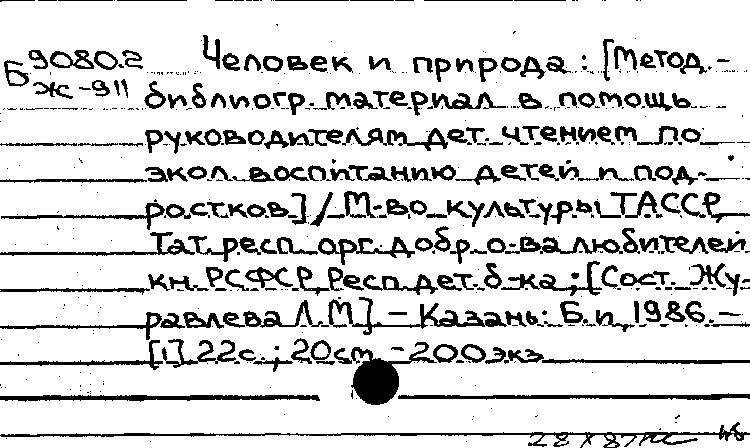 9080.2 Человек и природа : [Метод.-
Бж-911 библиогр. материал в помощь
руководителям дет. чтением по
экол. воспитанию детей и под-
ростков] / М-во культуры ТАССР,
Тат. респ. орг. добр. о-ва любителей
кн. РСФСР, Респ. дет. б-ка ; [Сост. Жу-
равлева Л.М]. – Казань: Б.и, 1986. –
[1] 22с. ; 20см. – 200экз
28 X 87